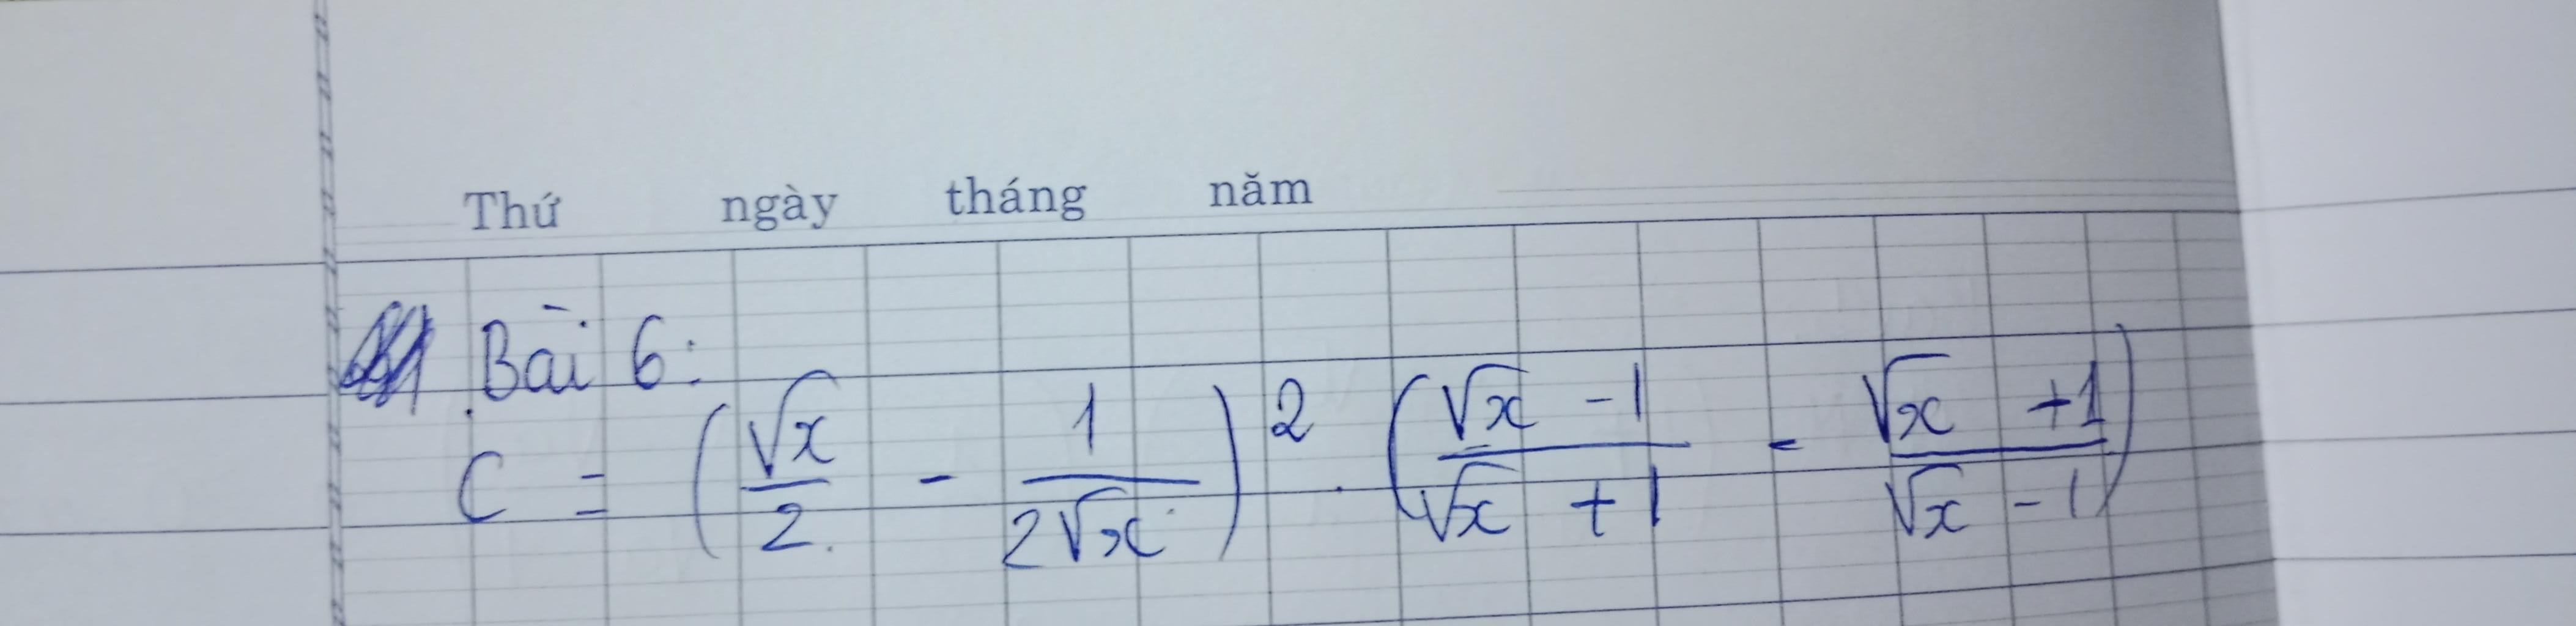 Thứ ngày tháng năm
Bài 6:
C = (√x/2 - 1/(2√x))² . ((√x - 1)/(√x + 1) - (√x + 1)/(√x - 1))